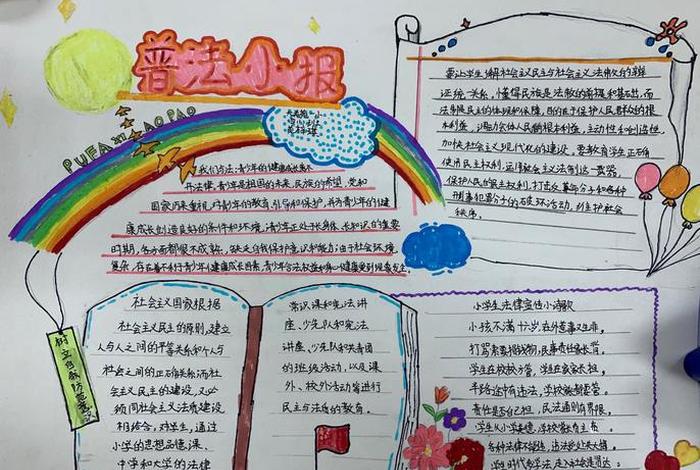 普法小报
PUFA XIAO PAO
我们与法:青少年的健康成长离不
开法律,青少年是祖国的未来,民族的希望,党和
国家历来重视对青少年的教育,引导和保护,并为青少年的健
康成长创造良好的条件和环境,青少年正处于长身体、长知识的重要
时期,各方面都很不成熟,缺乏自我保护意识和能力;由于社会环境
复杂,存在着不利于青少年健康成长因素,青少年合法权益和身心健康受到侵害发生。
要让学生理解社会主义民主与社会主义法制的辩
证统一关系,懂得民主是法制的前提和基础,而
法制是民主的体现和保障,目的在于保护人民群众的根
本利益
加快社会主义现代化的建设,要教育学生正确
使用民主权利,运用社会主义法制这一武器,
保护人民的民主权利,打击反革命分子和各种
刑事犯罪分子的破坏活动,维护社会
秩序。
树立自我防范意识
社会主义国家根据
社会主义民主的原则,建立
人与人之间的平等关系和个人与
社会之间的正确关系而社
会主义民主的建设,又必
须同社会主义法制建设
相结合,对学生,通过
小学的思想品德课、
中学和大学的法律
常识课和宪法讲
座、少先队和宪法
讲座、少先队和共青团
的班级活动,以及课
外、校外活动等进行
民主与法制的教育。
小学生法律宣传小海歌
小孩不满十岁,在外惹事又生非,
打骂索要损钱物,民事责任家长背。
学生在校校方管,学生在家家长担,
半路途中有违法,学校推动要管。
责任是否自己担,民法通则有界限,
各种法律不能违,违法处处去大墙。